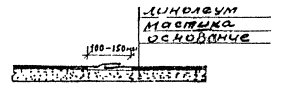 линолеум
мастика
основание
100-150мм